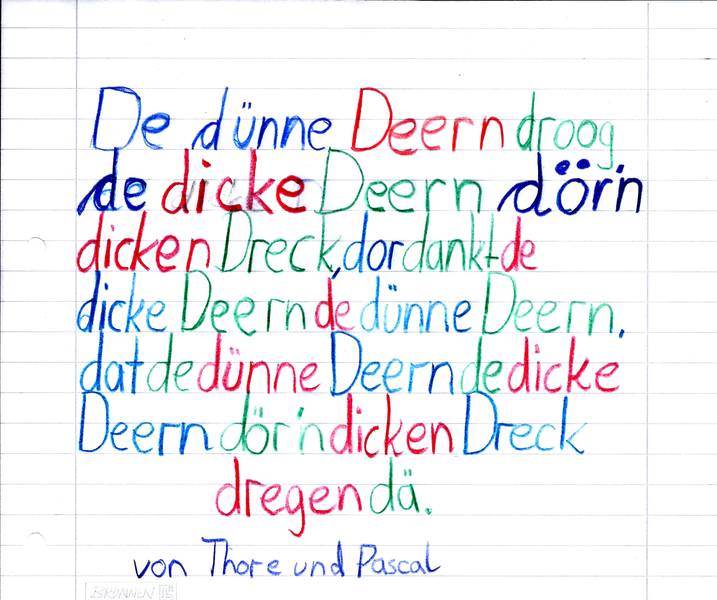 De dünne Deern droog,
de dicke Deern dör'n
dicken Dreck, dor dankt de
dicke Deern de dünne Deern,
dat de dünne Deern de dicke
Deern dör'n dicken Dreck
dregen dä.
von Thore und Pascal
BRUNNEN